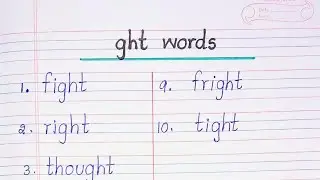 ght words
1. fight
2. right
3. thought
9. fright
10. tight